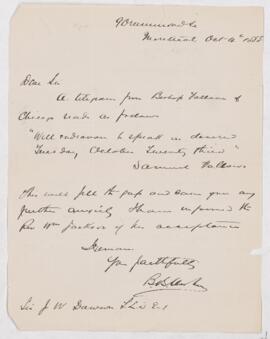 9 Drummond St
Montreal Oct 4th 1888
Dear Sir
A telegram from Bishop Fallows of
Chicago reads as follows
"Will endeavor to speak as desired
Tuesday October Twenty third"
Samuel Fallows
This will fill the gap and save you any
further anxiety I have informed the
Rev Wm Jackson of his acceptance
I remain
Yrs faithfully
Sir J W Dawson